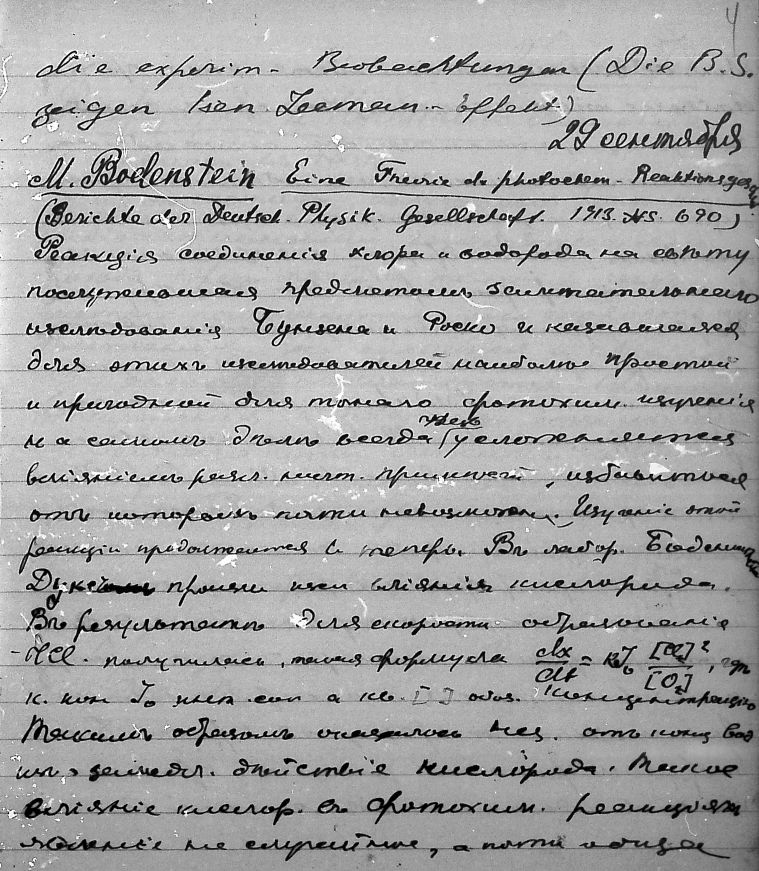 4
die experim. Beobachtungen (Die B.S.
zeigen kein Zeeman-Effekt)
29 сентября
M. Bodenstein Eine Theorie d. photochem. Reaktionsges
(Berichte der Deutsch. Physik. Gesellschaft. 1913. S. 690)
Реакція соединенія хлора и водорода на свѣту
послужившая предметомъ
изслѣдованія Бунзена и Роско и казавшаяся
для этихъ изслѣдователей наиболѣе простой
и пригодной для точнаго фотохим. изученія
на самомъ дѣлѣ всегда усложняется
вліяніемъ разл. причинъ, избавиться
отъ которыхъ почти невозможно. Изученіе этой
реакціи продолжается и теперь. Въ лабор. Боденштейна
вліянія кислорода.
Въ результатѣ для скорости образованія
HCl. получилась такая формула dx/dt = kJ₀ [Cl₂]²/[O₂], гдѣ
J₀ а [ ] обоз. концентрацію
Такимъ образомъ оказалось нез. отъ конц. вод
и замедл. дѣйствіе кислорода. Такое
вліяніе кислор. въ фотохим. реакціяхъ
явленіе не случайное, а почти общее